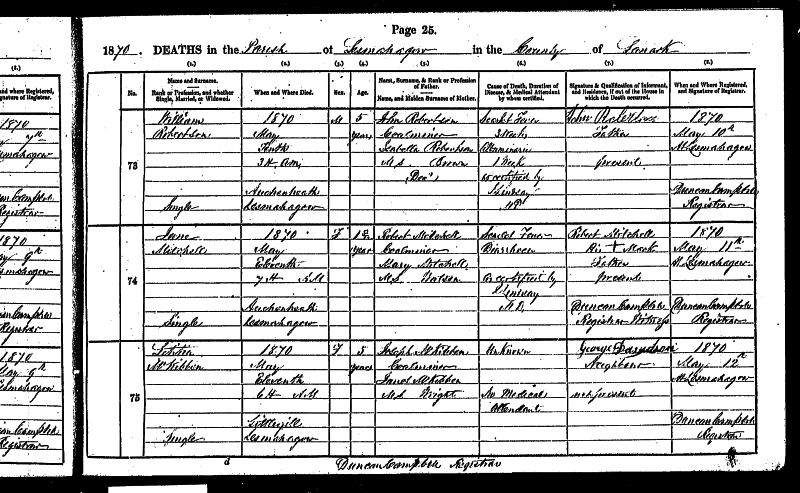 Page 25.
1870. DEATHS in the Parish of Lesmahagow in the County of Lanark
(1.) (2.) (3.) (4.) (5.) (6.) (7.) (8.)
No.
Name and Surname.
Rank or Profession, and whether Single, Married, or Widowed.
When and Where Died.
Sex.
Age.
Name, Surname, & Rank or Profession of Father.
Name, and Maiden Surname of Mother.
Cause of Death, Duration of Disease, & Medical Attendant by whom certified.
Signature & Qualification of Informant, and Residence, if out of the House in which the Death occurred.
When and where Registered, and Signature of Registrar.
73
William
Robertson
Single
1870
May
Tenth
3H. A.M.
Auchenheath
Lesmahagow
M
5
years
John Robertson
Coalminer
Isabella Robertson
M.S. Brown
Scarlet Fever
3 Weeks
Albuminuria
1 Week
as certified by
Lindsay
John Robertson
Father
present
1870
May 10th
At Lesmahagow
Duncan Campbell
Registrar
74
Jane
Mitchell
Single
1870
May
Eleventh
7 H A.M
Auchenheath
Lesmahagow
F
year
Robert Mitchell
Coalminer
Mary Mitchell
M.S. Watson
Scarlet Fever
Diarrhoea
as certified by
Lindsay
M.D.
Robert Mitchell
His + Mark
Father
present
Duncan Campbell
Registrar Witness
1870
May 11th
At Lesmahagow
Duncan Campbell
Registrar
75
Letitia
McKibbin
Single
1870
May
Eleventh
6H A.M
Lesmahagow
F
5
years
Joseph McKibbin
Coalminer
Janet McKibbin
M.S. Wright
Unknown
No Medical
Attendant
George Davidson
Neighbour
not present
1870
May 12th
At Lesmahagow
Duncan Campbell
Registrar
Duncan Campbell Registrar